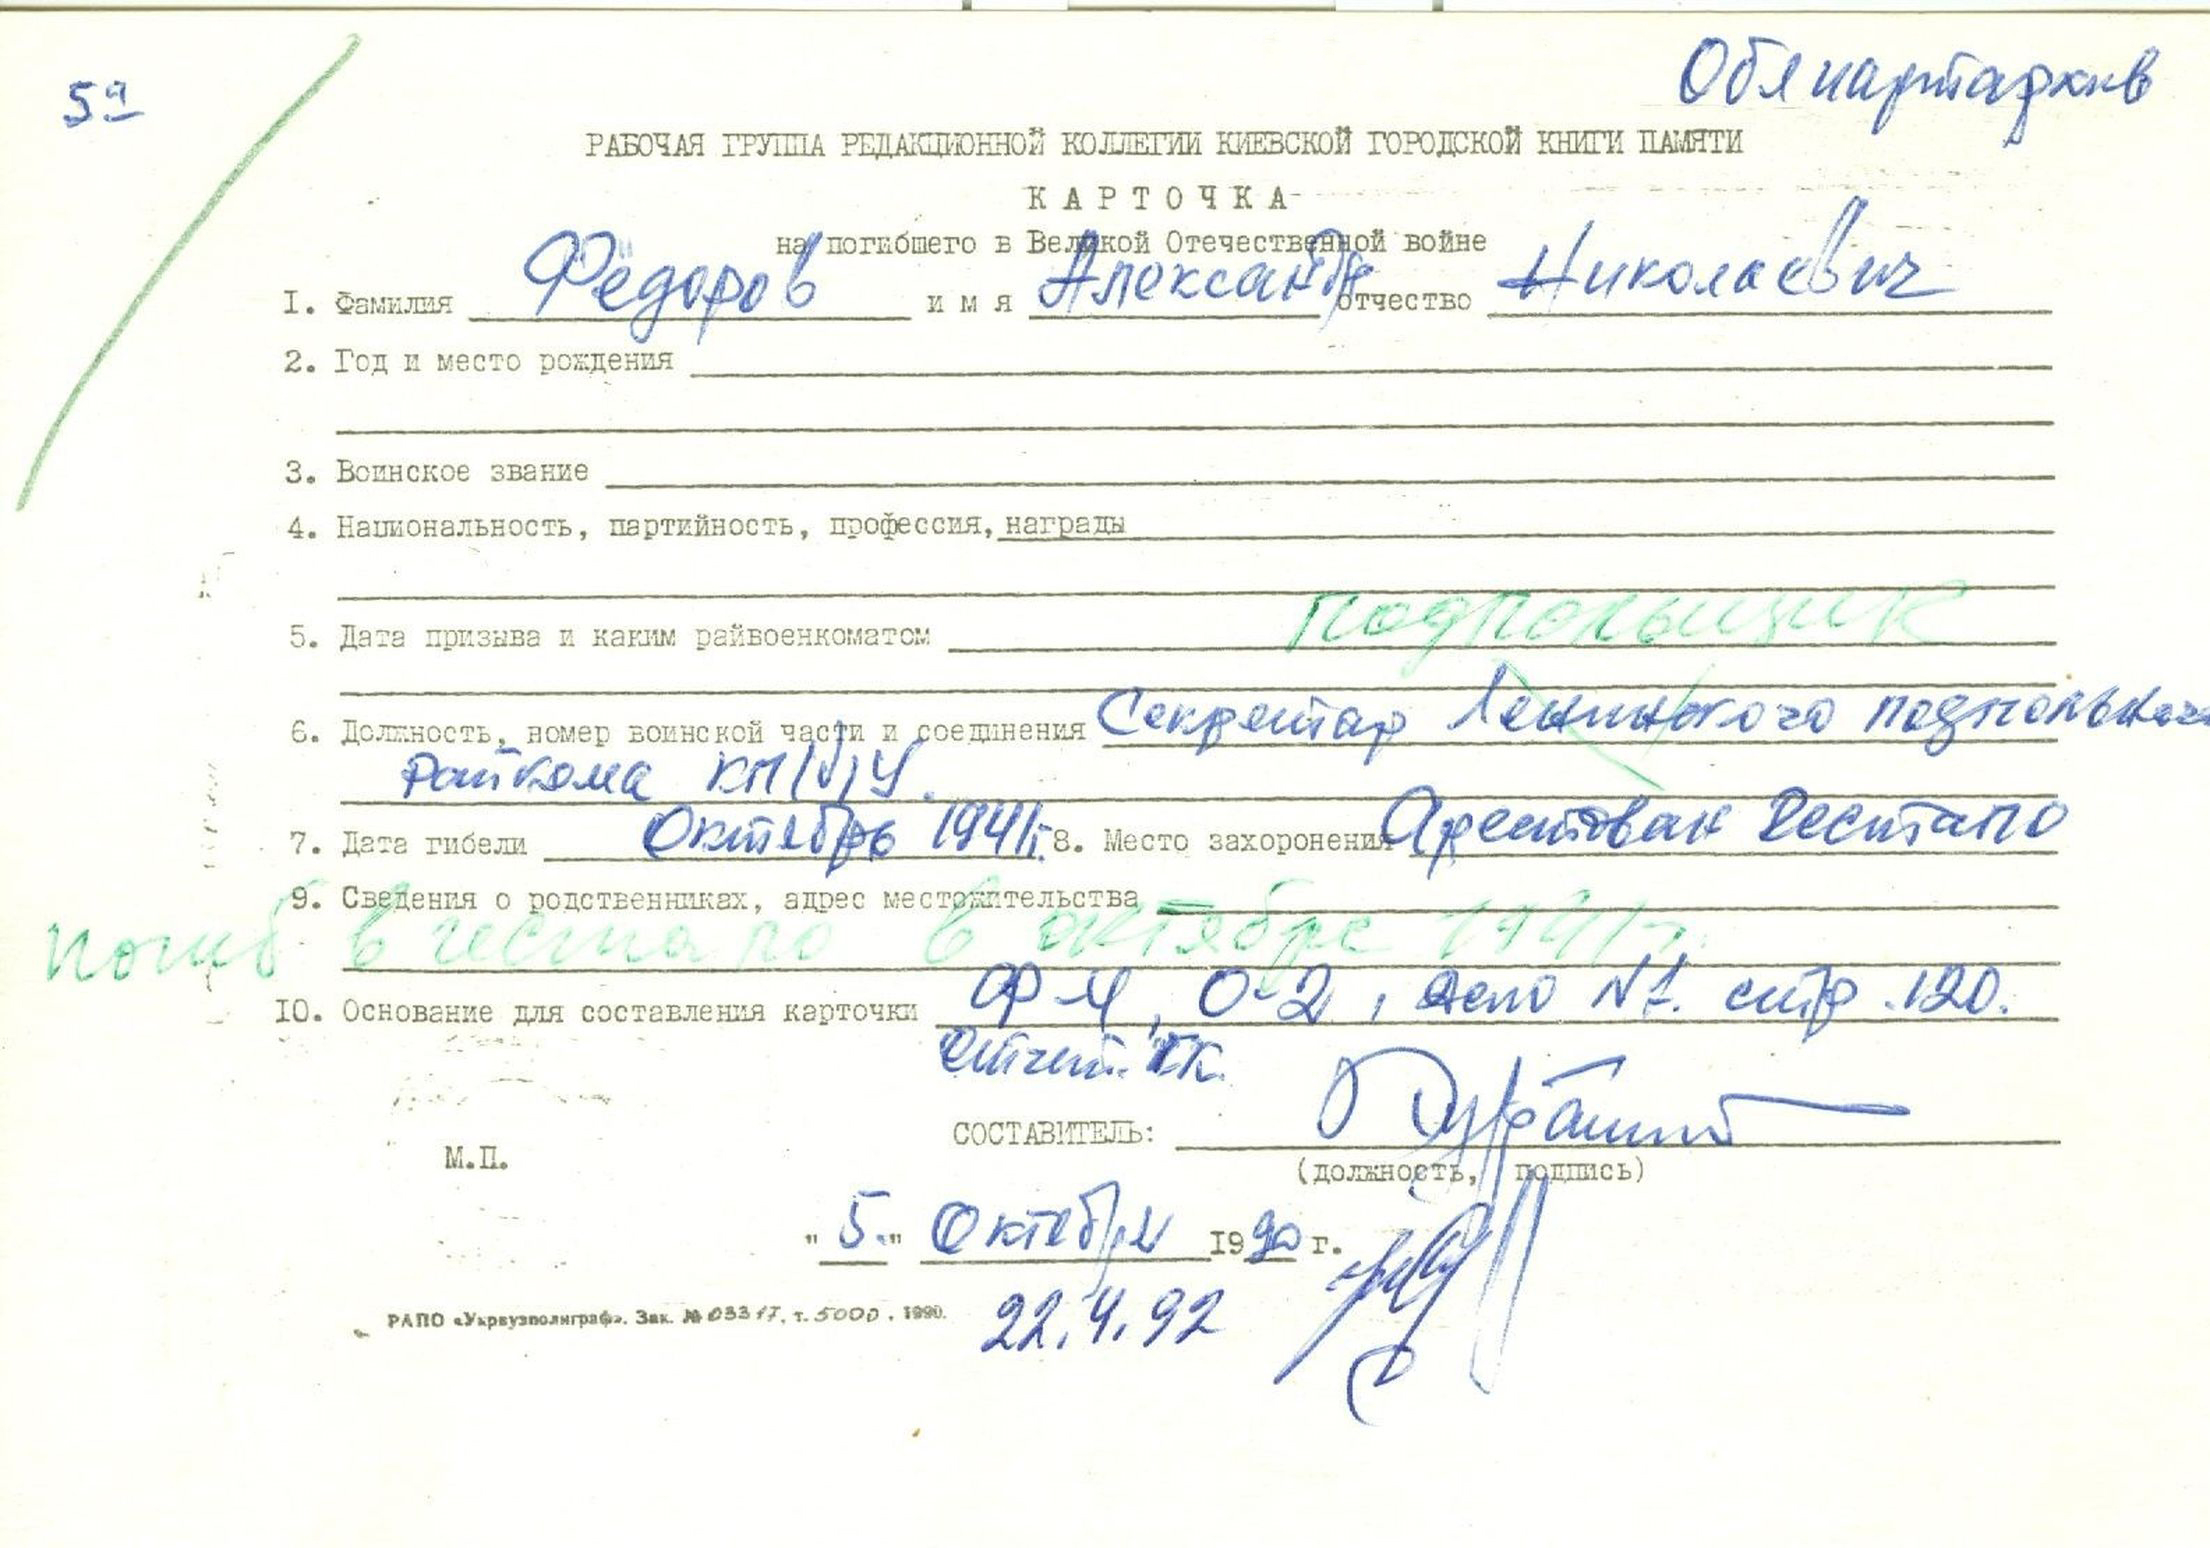 5а
Облпартархив
РАБОЧАЯ ГРУППА РЕДАКЦИОННОЙ КОЛЛЕГИИ КИЕВСКОЙ ГОРОДСКОЙ КНИГИ ПАМЯТИ
КАРТОЧКА
на погибшего в Великой Отечественной войне
I. Фамилия Фёдоров имя Александр отчество Николаевич
2. Год и место рождения
3. Воинское звание
4. Национальность, партийность, профессия, награды
подпольщик
5. Дата призыва и каким райвоенкоматом
6. Должность, номер воинской части и соединения Секретар Ленинского подпольного
райкома КП/б/У.
7. Дата гибели Октябрь 1941г. 8. Место захоронения Арестован Гестапо
9. Сведения о родственниках, адрес местожительства
погиб в гестапо в октябре 1941г.
IO. Основание для составления карточки Ф-4, О-2, дело №1. стр. 120.
СОСТАВИТЕЛЬ:
М.П.
(должность, подпись)
"5." Октября 1990 г.
РАПО «Укрвузполиграф». Зак. № 03317, т. 5000. 1990.
22.4.92